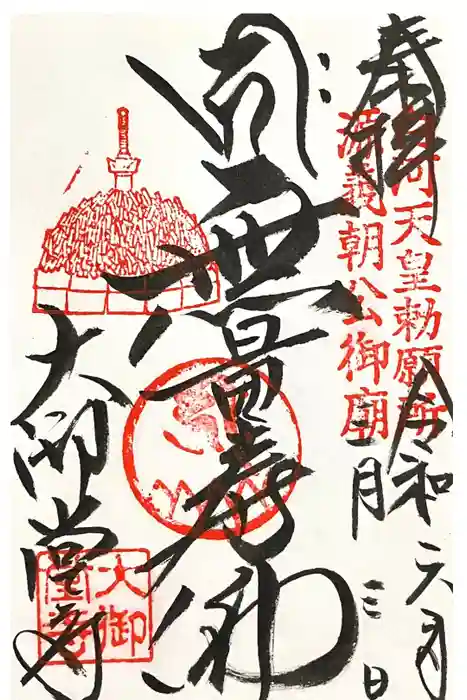 奉拝
白河天皇勅願所
源義朝公御廟
令和六年
二月三日
無量寿佛
大御堂寺
大御
堂寺